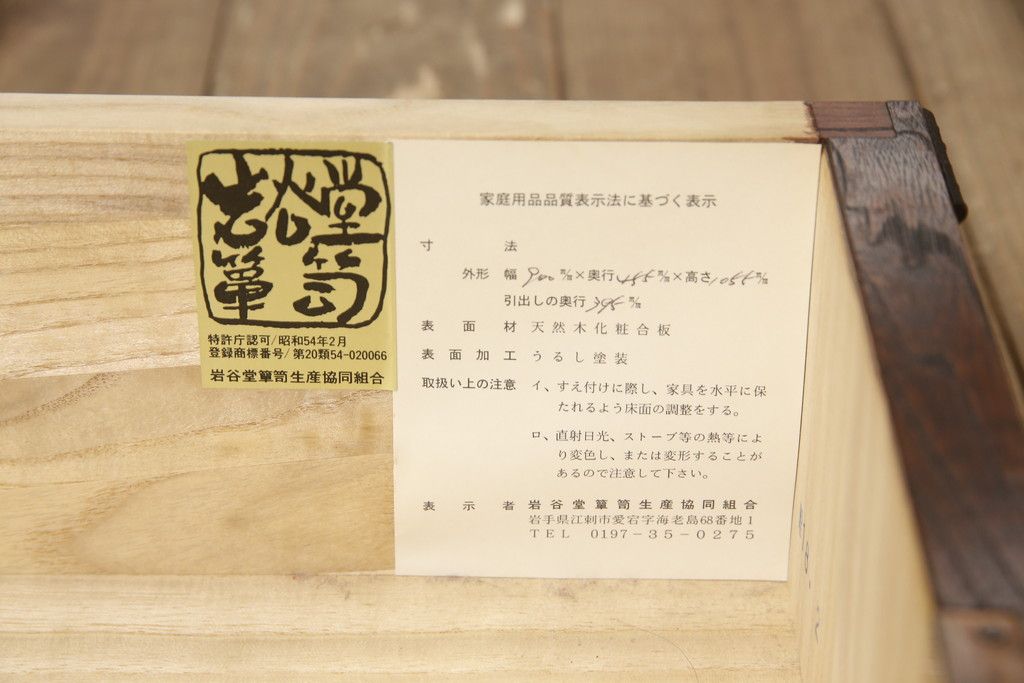 岩谷堂簞笥
特許庁認可/昭和54年2月
登録商標番号/第20類54-020066
岩谷堂簞笥生産協同組合
家庭用品品質表示法に基づく表示
寸法
外形 幅 900 ㎜×奥行 455 ㎜×高さ 1055 ㎜
引出しの奥行 395 ㎜
表面材 天然木化粧合板
表面加工 うるし塗装
取扱い上の注意 イ、すえ付けに際し、家具を水平に保
たれるよう床面の調整をする。
ロ、直射日光、ストーブ等の熱等によ
り変色し、または変形することが
あるので注意して下さい。
表示者 岩谷堂簞笥生産協同組合
岩手県江刺市愛宕字海老島68番地1
TEL 0197-35-0275